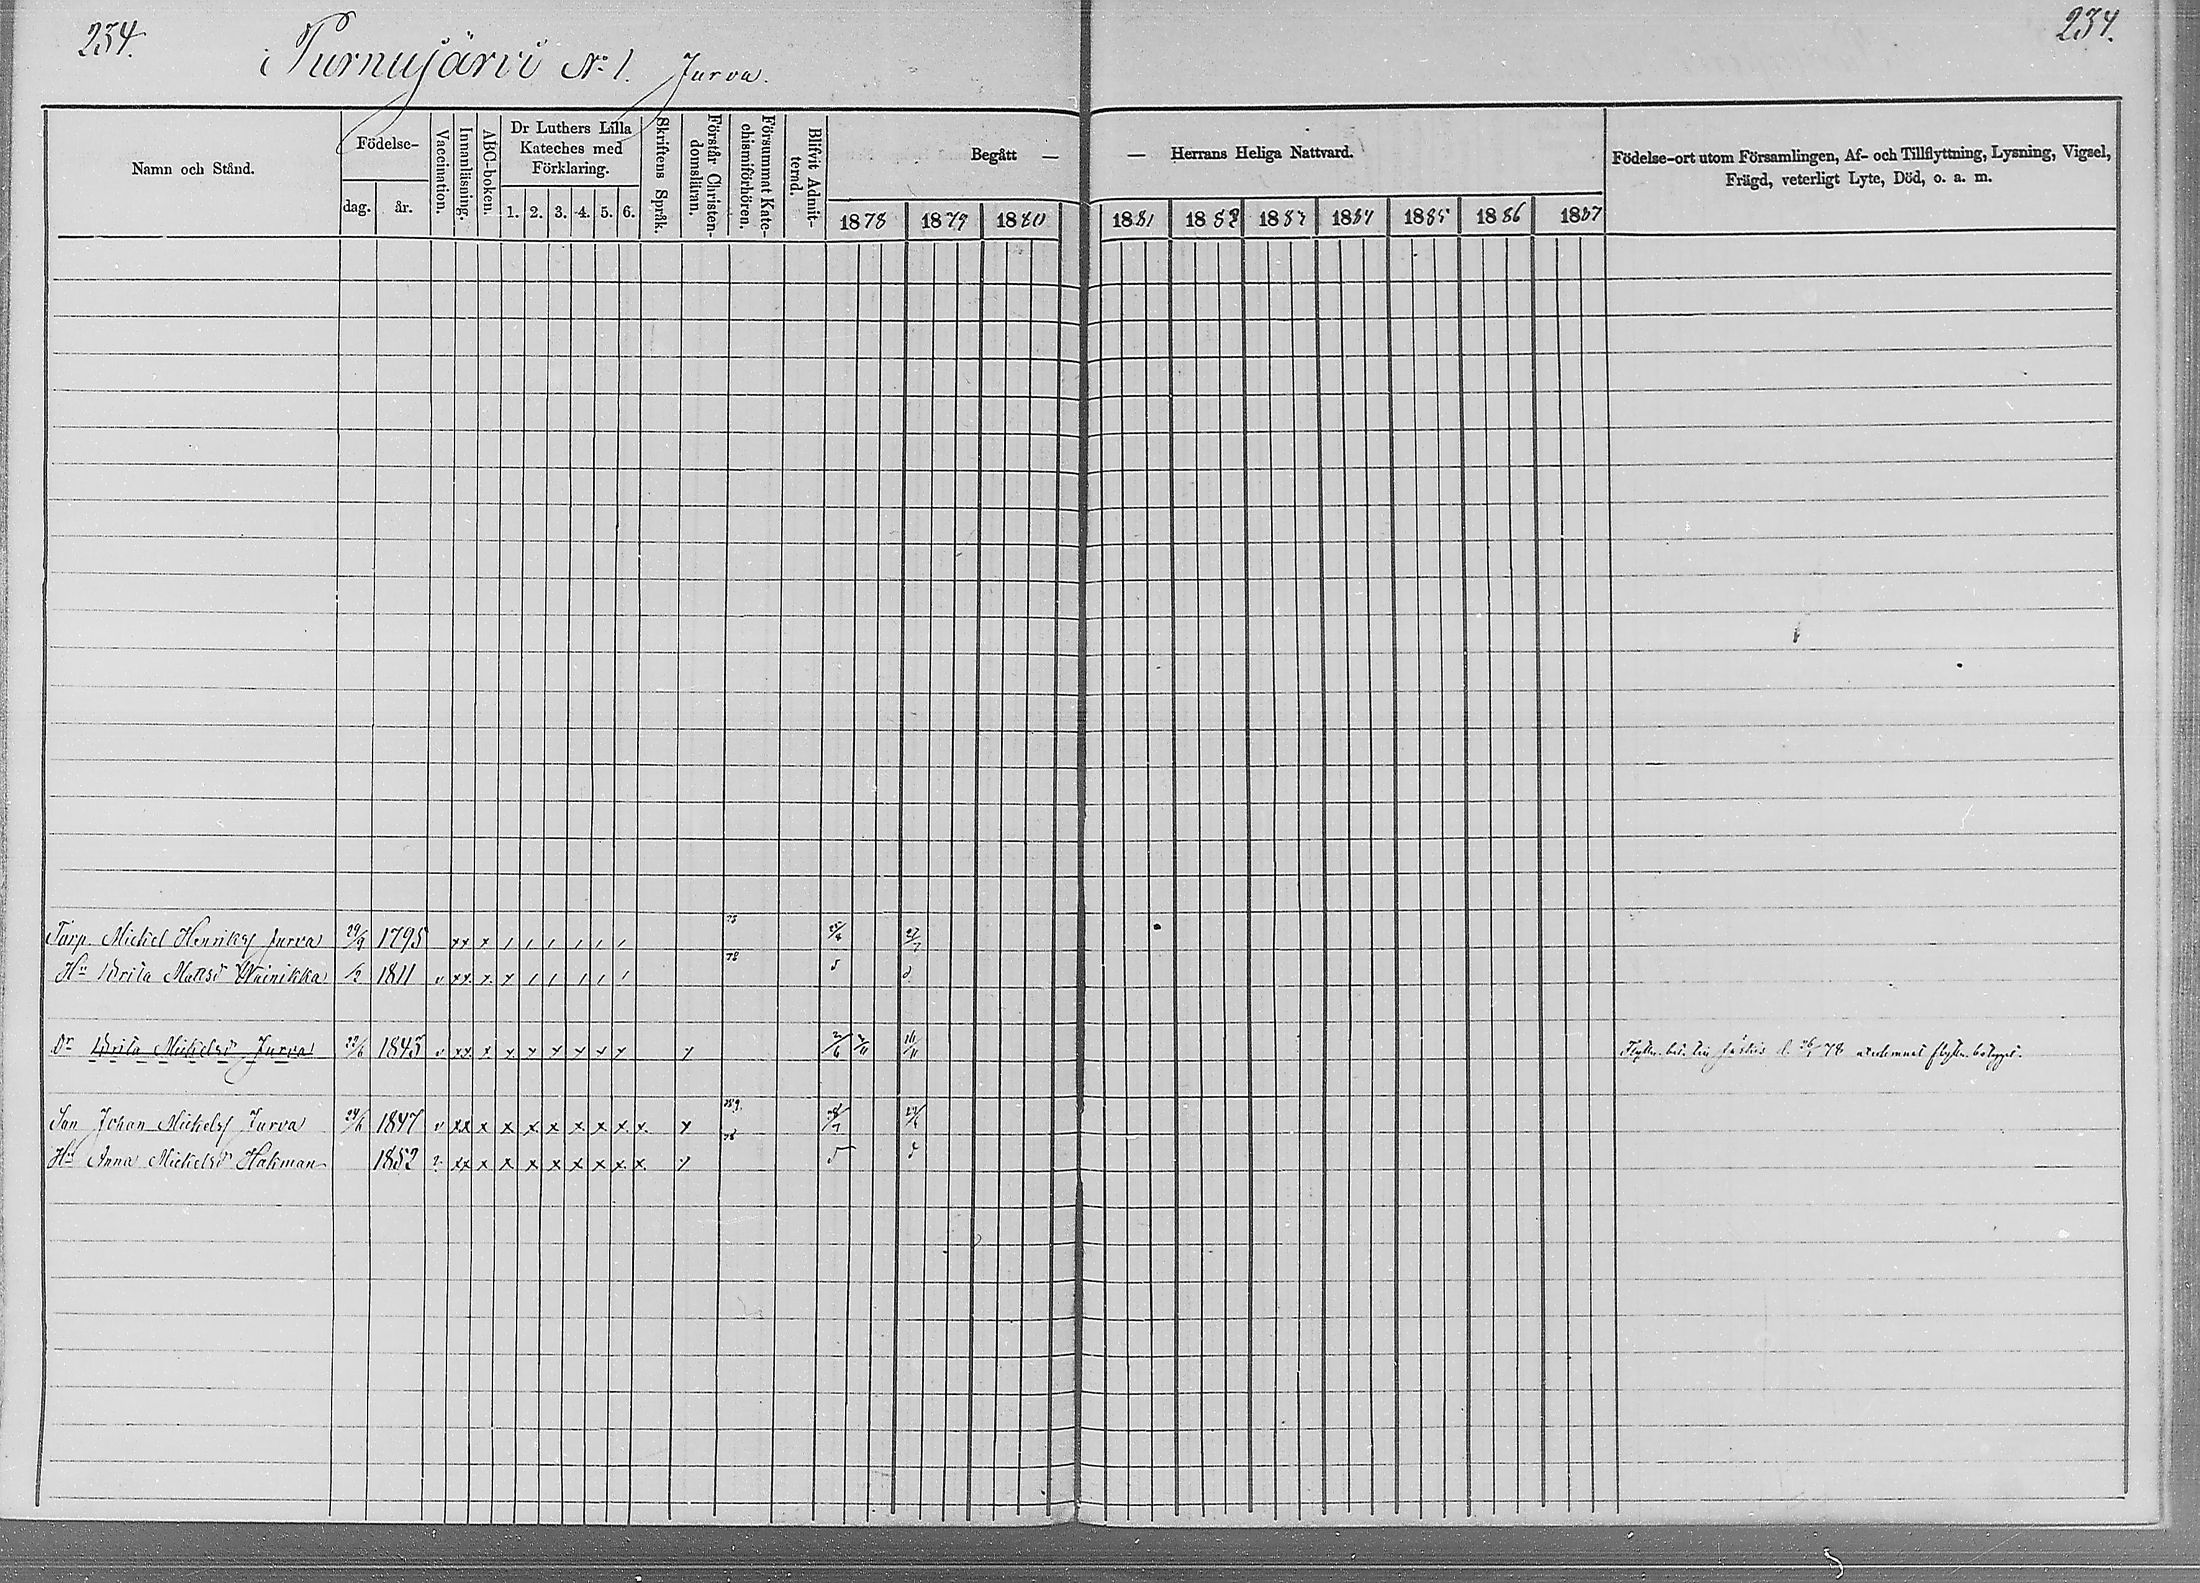 234.
234.
Turnujärvi No 1. Jurva.
Namn och Stånd.
Födelse-
dag. år.
Vaccination.
Innanläsning.
ABC-boken.
Dr Luthers Lilla
Kateches med
Förklaring.
1. 2. 3. 4. 5. 6.
Skriftens Språk.
Förstår Christen-
domsläran.
Försummat Kate-
chismiförhören.
Blifvit Admit-
terad.
Begått —
— Herrans Heliga Nattvard.
1878 1879 1880
1881 1882 1883 1884 1885 1886 1887
Födelse-ort utom Församlingen, Af- och Tillflyttning, Lysning, Vigsel,
Frägd, veterligt Lyte, Död, o. a. m.
Torp. Mickel Henriks Jurva 29/9 1795 xx x / / / / / / 27/7
Hu Brita Matsd Wainikka 1/2 1811 v xx x x / / / / / 78
Dr Brita Mickelsd Jurva 1843 v xx x x x x x x x
Son Johan Michels Jurva 24/6 1847 v xx x x x x x x x x
Hu Anna Mickelsd Hakman 1852 xx x x x x x x x x 78